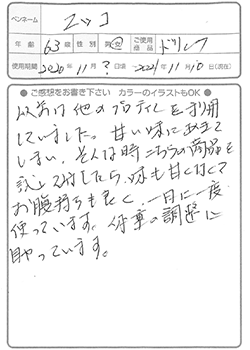 ペンネーム ニッコ
年齢 63歳 性別 男・女 ご使用商品 ドリンク
使用期間 2020年11月?日頃 2021年11月10日(現在)
● ご感想をお書き下さい カラーのイラストもOK ●
以前は他のプロテインを利用
していました。甘い味にあきて
しまい、そんな時こちらの商品を
試してみましたら、味も甘くなくて
お腹持ちも良く、一日に一度
使っています。食事の調整に
役立っています。